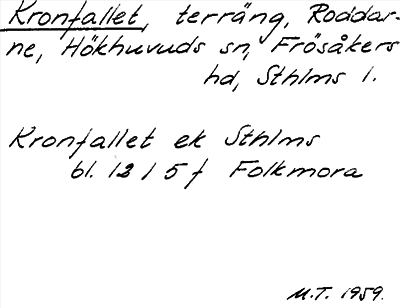 Kronfallet, terräng, Roddar-
ne, Hökhuvuds sn, Frösåkers
hd, Sthlms l.
Kronfallet ek Sthlms
bl. 12 I 5 f Folkmora
M.T. 1959.